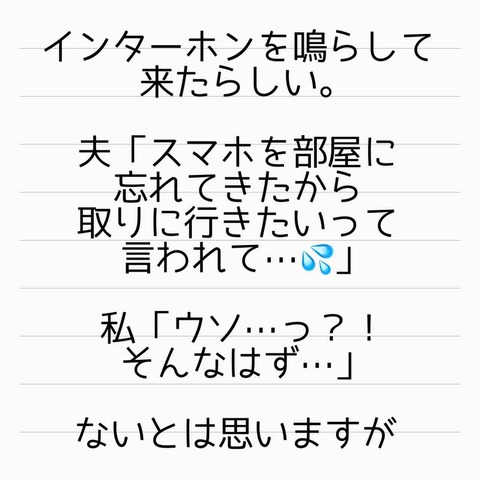 インターホンを鳴らして
来たらしい。
夫「スマホを部屋に
忘れてきたから
取りに行きたいって
言われて…💦」
私「ウソ…っ？！
そんなはず…」
ないとは思いますが